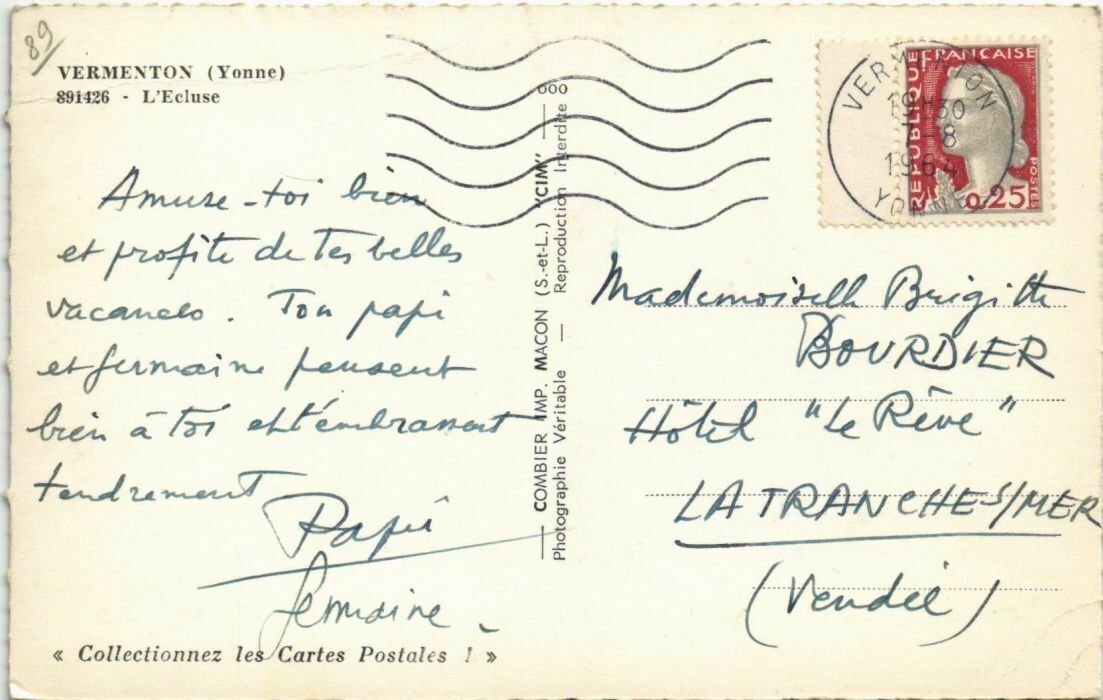 89
VERMENTON (Yonne)
891426 - L'Ecluse
Amuse-toi bien
et profite de tes belles
vacances. Ton papi
et Germaine pensent
bien à toi et t'embrassent
tendrement
Papi
Germaine
« Collectionnez les Cartes Postales ! »
COMBIER IMP. MACON (S.-et-L.) "CIM"
Photographie Véritable — Reproduction Interdite
000
VERMENTON
19-30
7-8
1964
YONNE
REPUBLIQUE FRANÇAISE
POSTES
0,25
Mademoiselle Brigitte
BOURDIER
Hôtel "Le Rêve"
LA TRANCHE S/MER
(Vendée)